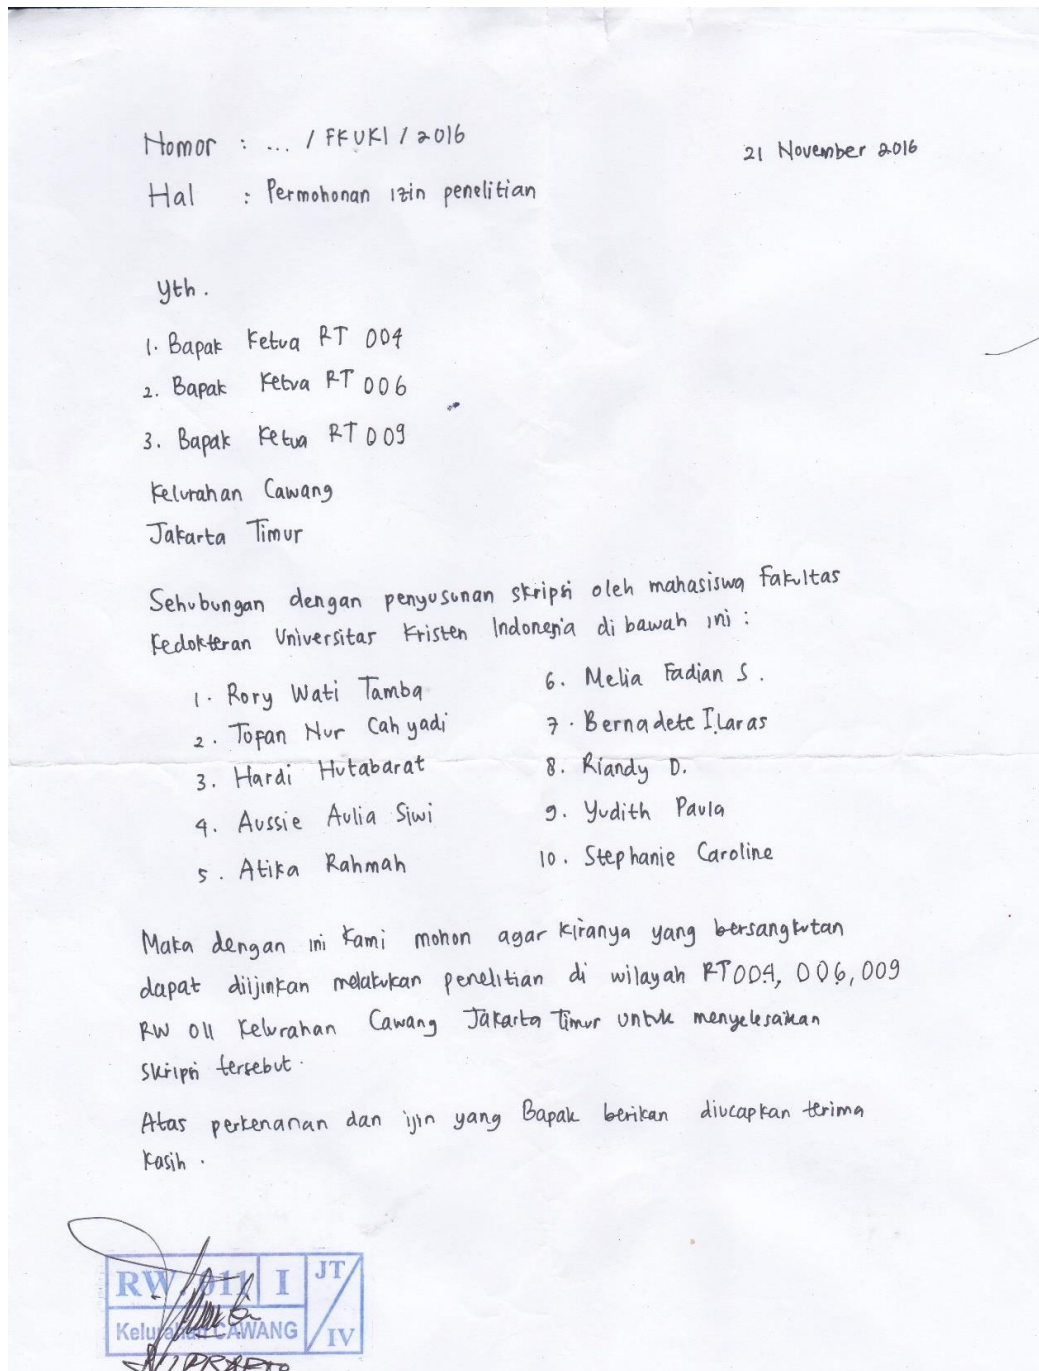 Nomor : ... / FKUKI / 2016
21 November 2016
Hal : Permohonan izin penelitian
Yth.
1. Bapak Ketua RT 004
2. Bapak Ketua RT 006
3. Bapak Ketua RT 009
Kelurahan Cawang
Jakarta Timur
Sehubungan dengan penyusunan skripsi oleh mahasiswa Fakultas
Kedokteran Universitas Kristen Indonesia di bawah ini :
1. Rory Wati Tamba
2. Topan Nur Cahyadi
3. Hardi Hutabarat
4. Aussie Aulia Siwi
5. Atika Rahmah
6. Melia Fadian S.
7. Bernadete I.Laras
8. Riandy D.
9. Yudith Paula
10. Stephanie Caroline
Maka dengan ini kami mohon agar kiranya yang bersangkutan
dapat diijinkan melakukan penelitian di wilayah RT 004, 006, 009
RW 011 Kelurahan Cawang Jakarta Timur untuk menyelesaikan
skripsi tersebut.
Atas perkenanan dan ijin yang Bapak berikan diucapkan terima
kasih.
RW. 011 I JT/IV
Kelurahan CAWANG